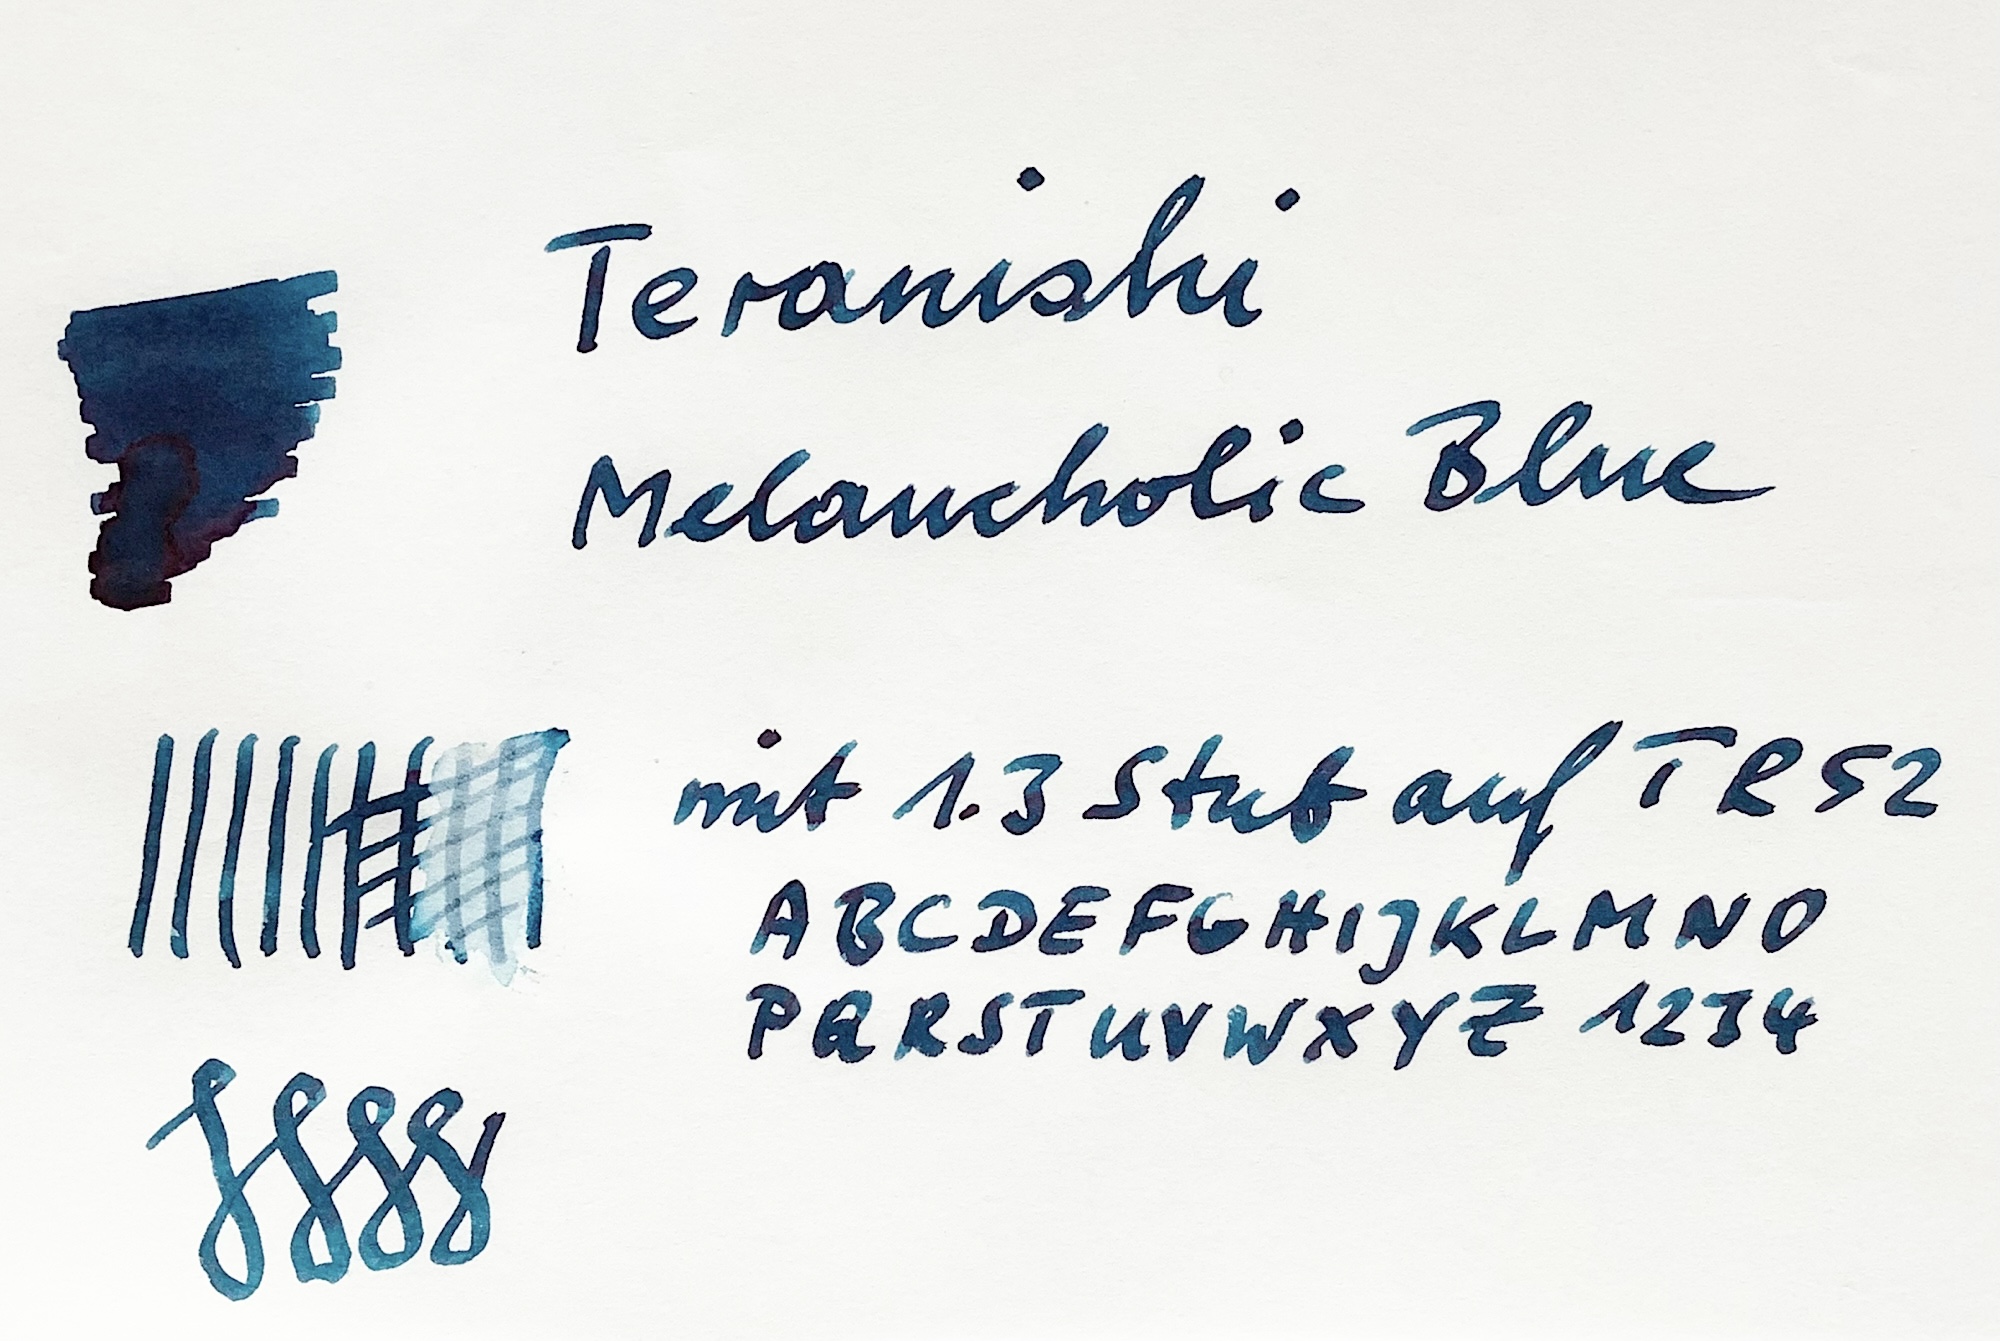 Teranishi
Melancholic Blue
mit 1.3 Stub auf TR52
ABCDEFGHIJKLMNO
PQRSTUVWXYZ 1234